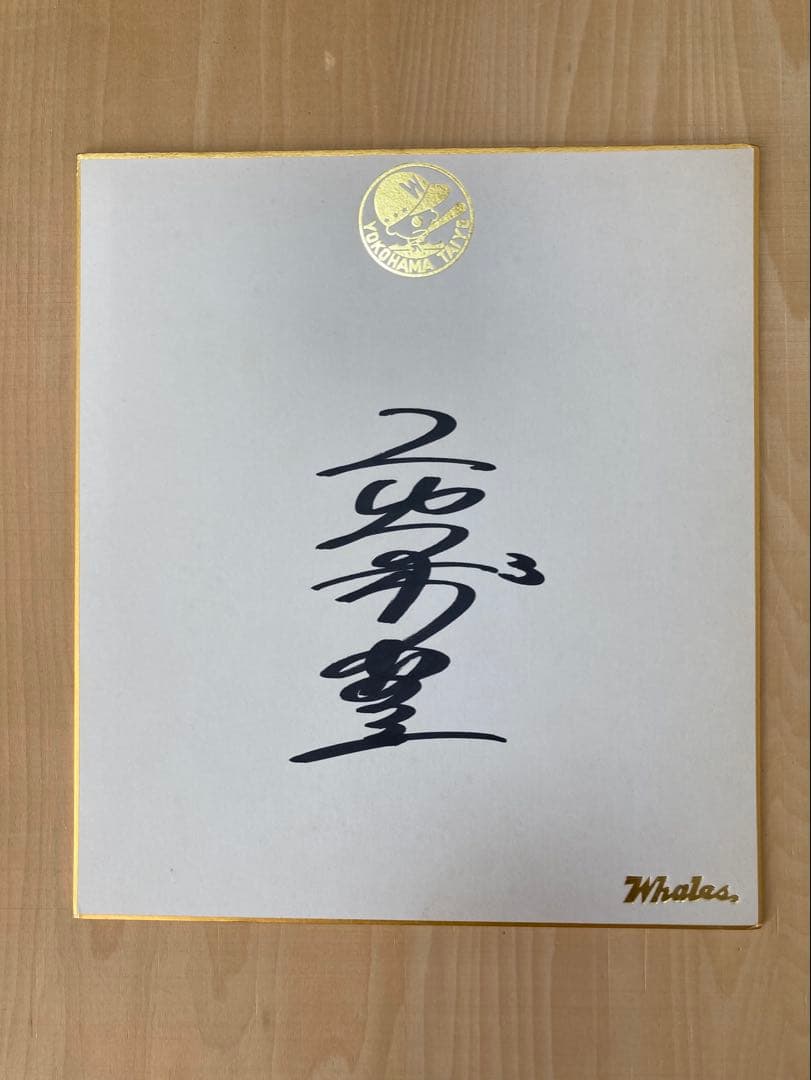 W
YOKOHAMA TAIYO
高木豊
3
Whales.